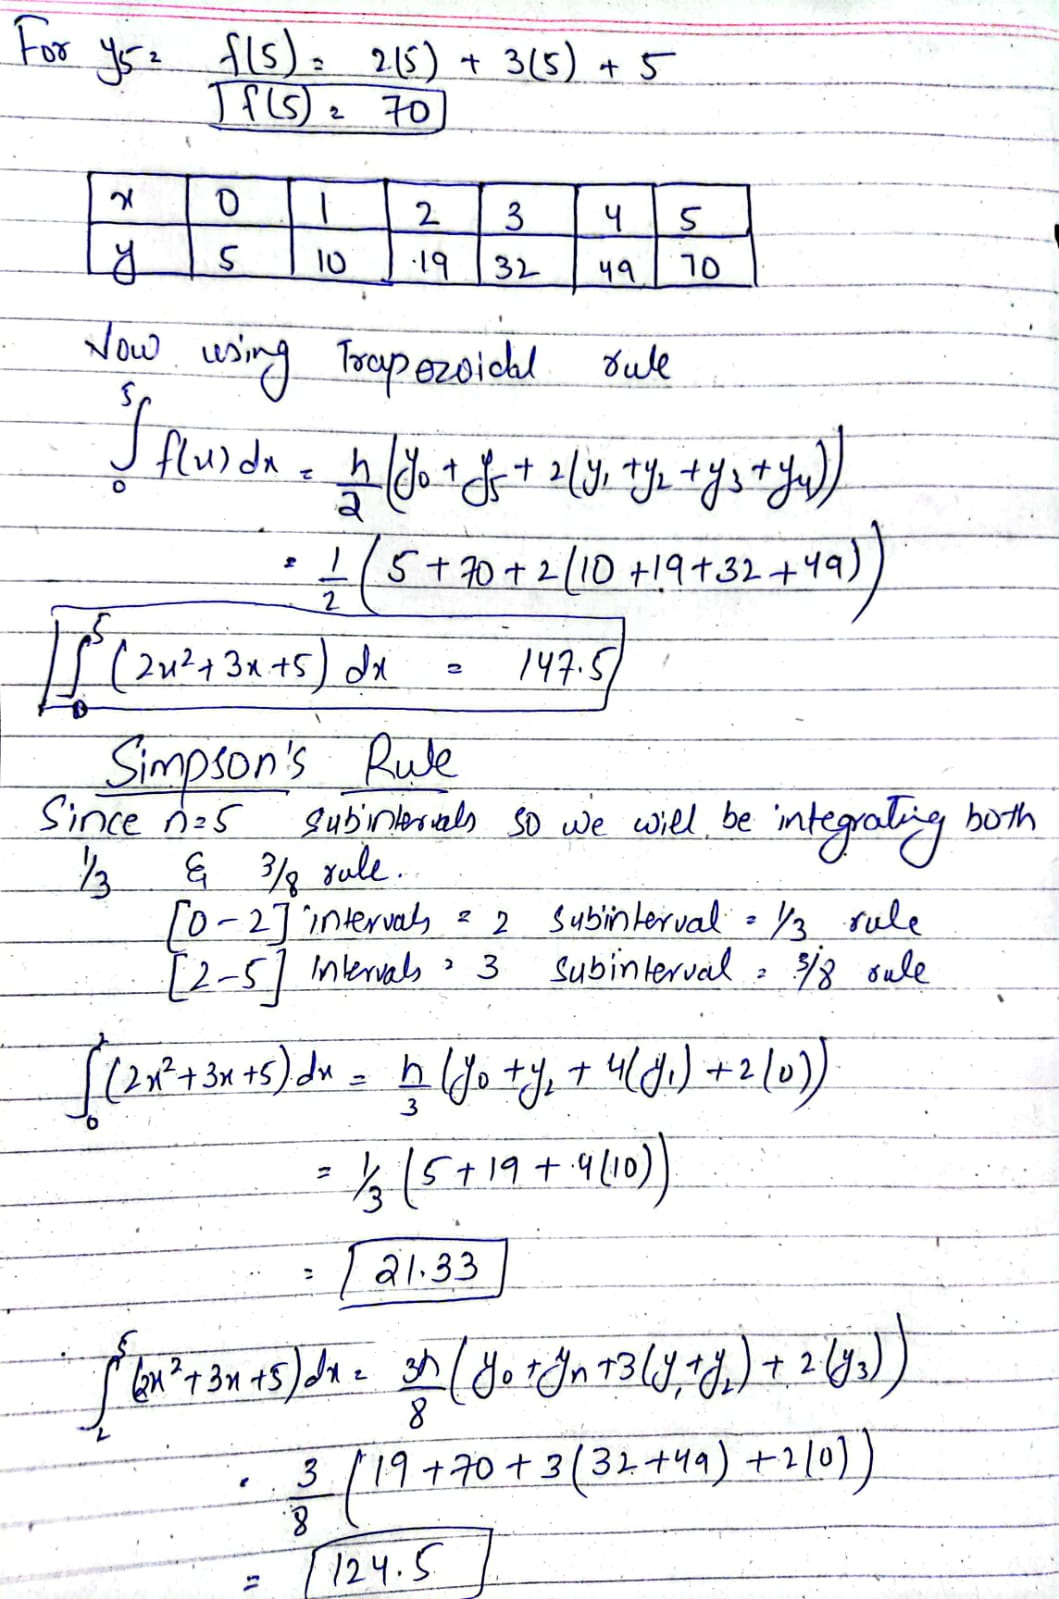 For y5 = f(5) = 2(5) + 3(5) + 5
f(5) = 70
x 0 1 2 3 4 5
y 5 10 19 32 49 70
Now using Trapezoidal rule
∫₀⁵ f(x) dx = h/2 (y₀ + y₅ + 2(y₁ + y₂ + y₃ + y₄))
= 1/2 (5 + 70 + 2(10 + 19 + 32 + 49))
∫₀⁵ (2x² + 3x + 5) dx = 147.5
Simpson's Rule
Since n=5 subintervals so we will be integrating both
1/3 & 3/8 rule.
[0-2] intervals = 2 subinterval = 1/3 rule
[2-5] Intervals = 3 subinterval = 3/8 rule
∫₀² (2x² + 3x + 5) dx = h/3 (y₀ + y₂ + 4(y₁) + 2(0))
= 1/3 (5 + 19 + 4(10))
= 21.33
∫₂⁵ (2x² + 3x + 5) dx = 3h/8 (y₀ + yn + 3(y₁ + y₂) + 2(y₃))
= 3/8 (19 + 70 + 3(32 + 49) + 2(0))
= 124.5